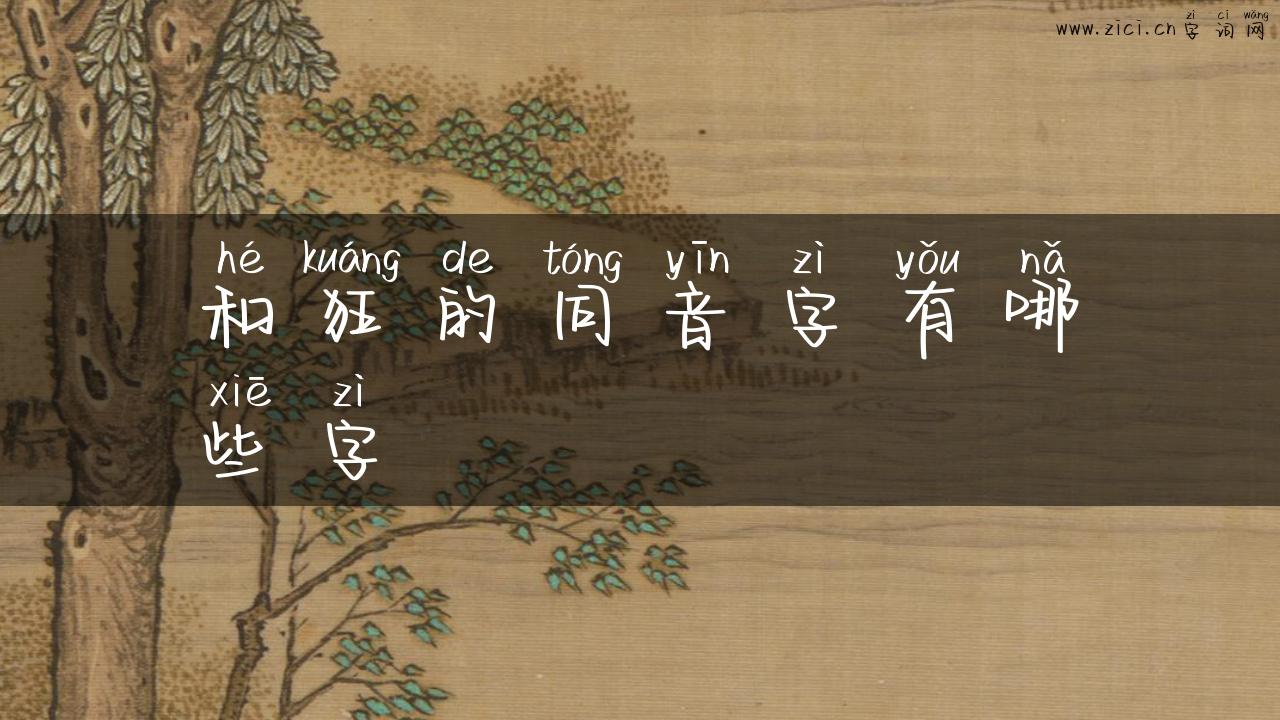 zì cí wǎng
www.zici.cn 字词网
hé kuáng de tóng yīn zì yǒu nǎ
和狂的同音字有哪
xiē zì
些字